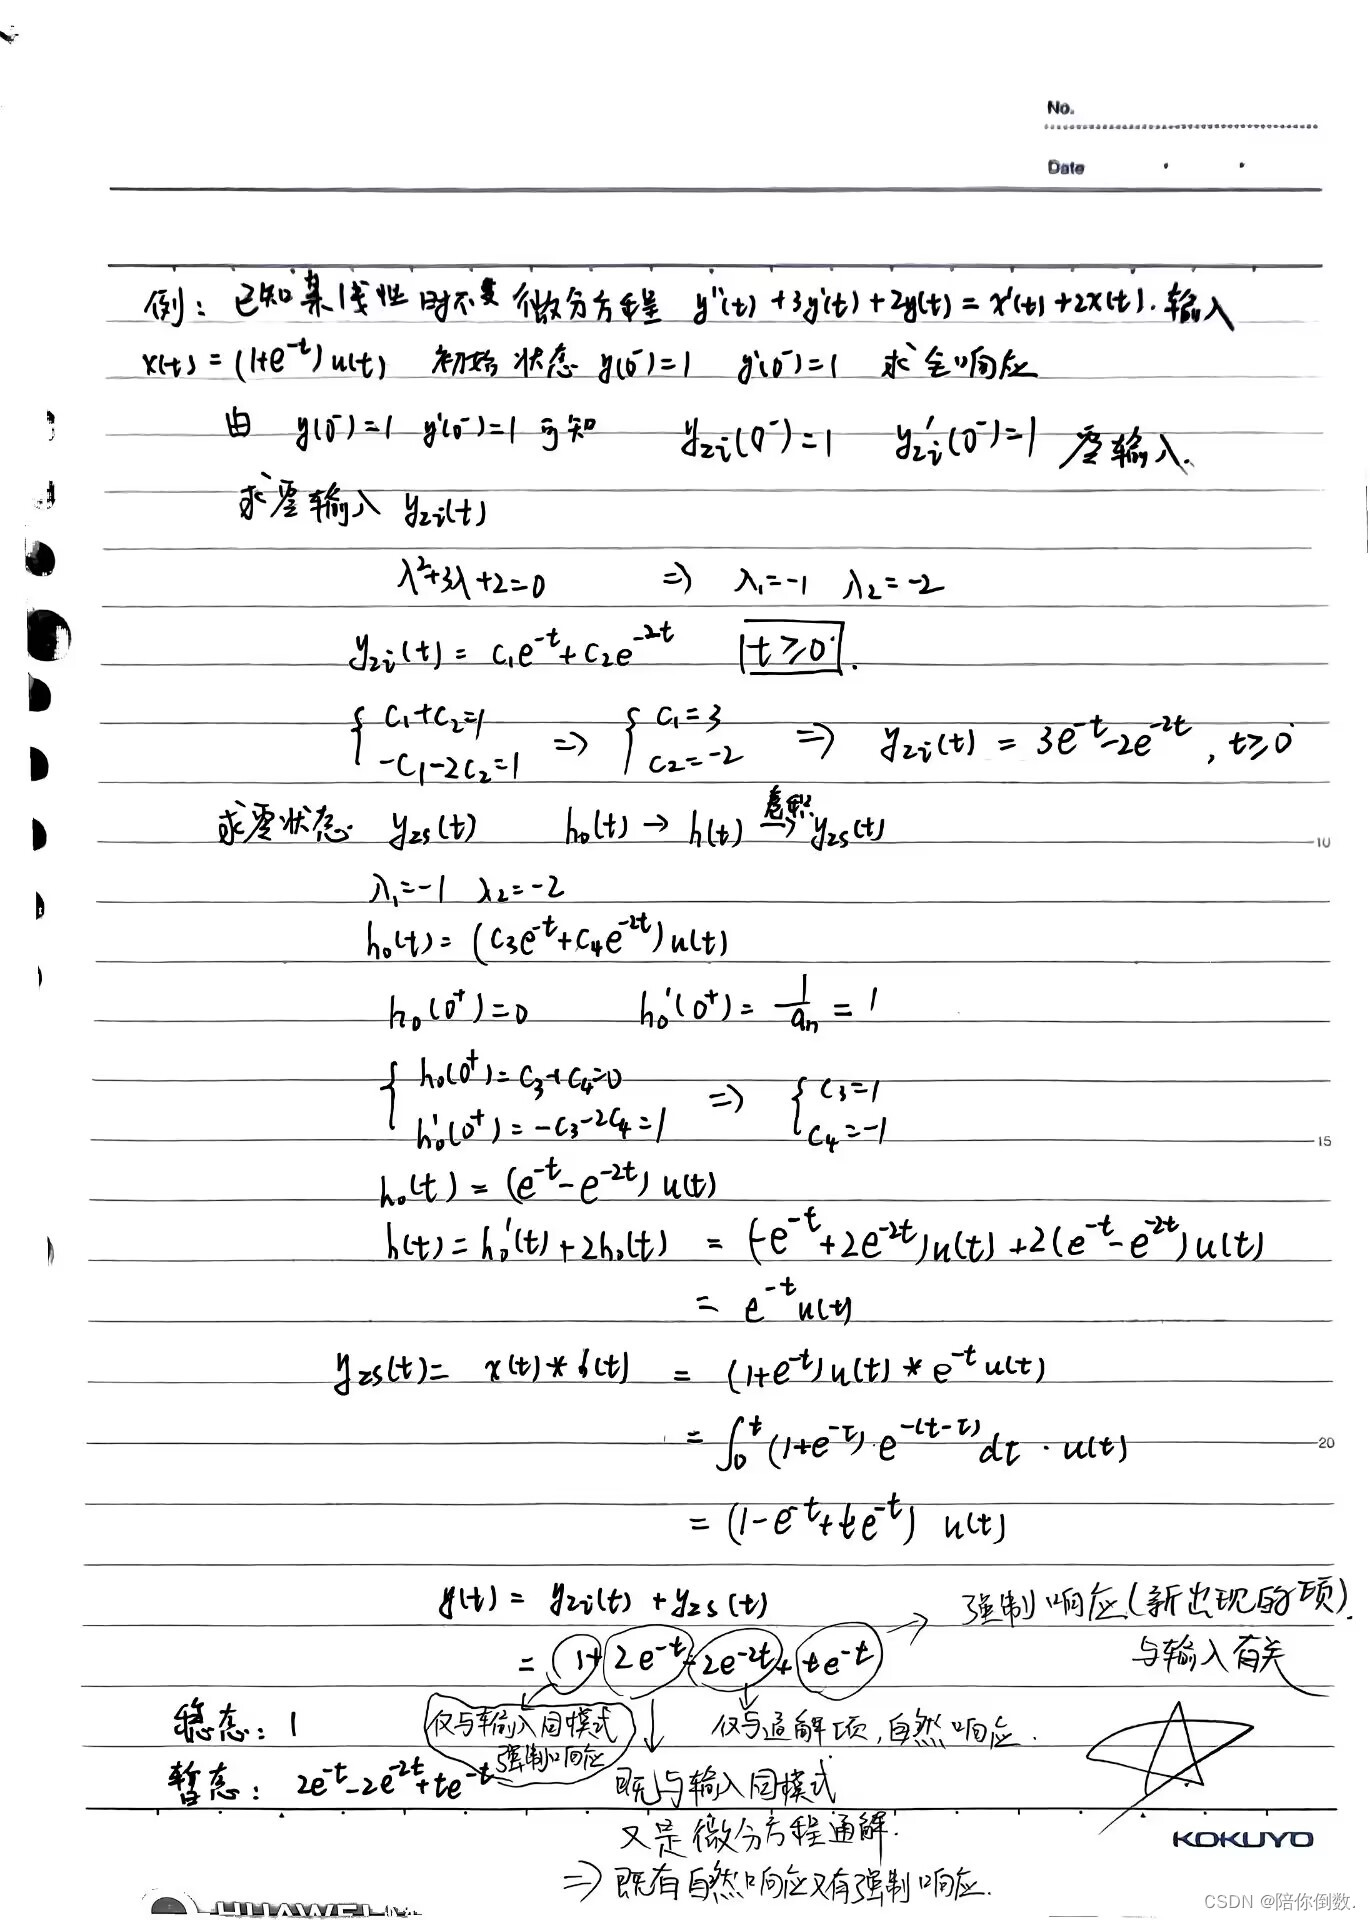 No.
Date
例: 已知某线性时不变微分方程 y''(t)+3y'(t)+2y(t)=x'(t)+2x(t). 输入
x(t)=(1+e^{-t})u(t) 初始状态 y(0^-)=1 y'(0^-)=1 求全响应
由 y(0^-)=1 y'(0^-)=1 可知 y_{zi}(0^-)=1 y_{zi}'(0^-)=1 零输入.
求零输入 y_{zi}(t)
λ^2+3λ+2=0 => λ_1=-1 λ_2=-2
y_{zi}(t)=c_1e^{-t}+c_2e^{-2t} t≥0.
{ c_1+c_2=1 => { c_1=3 => y_{zi}(t)=3e^{-t}-2e^{-2t}, t≥0
-c_1-2c_2=1 c_2=-2
求零状态 y_{zs}(t) h_0(t)→h(t) 卷积→ y_{zs}(t)
10
λ_1=-1 λ_2=-2
h_0(t)=(c_3e^{-t}+c_4e^{-2t})u(t)
h_0(0^+)=0 h_0'(0^+)=1/a_n=1
{ h_0(0^+)=c_3+c_4=0 => { c_3=1
h_0'(0^+)=-c_3-2c_4=1 c_4=-1
15
h_0(t)=(e^{-t}-e^{-2t})u(t)
h(t)=h_0'(t)+2h_0(t) =(-e^{-t}+2e^{-2t})u(t)+2(e^{-t}-e^{-2t})u(t)
=e^{-t}u(t)
y_{zs}(t)=x(t)*h(t) =(1+e^{-t})u(t)*e^{-t}u(t)
=∫_0^t(1+e^{-τ})·e^{-(t-τ)}dτ·u(t)
20
=(1-e^{-t}+te^{-t}) u(t)
y(t)=y_{zi}(t)+y_{zs}(t) → 强制响应(新出现的项).
=1+2e^{-t}-2e^{-2t}+te^{-t} 与输入有关
稳态: 1 仅与输入同模式 仅与通解项,自然响应.
强制响应
暂态: 2e^{-t}-2e^{-2t}+te^{-t} 既与输入同模式
又是微分方程通解.
KOKUYO
=> 既有自然响应又有强制响应.
HUAWEI
CSDN @陪你倒数.